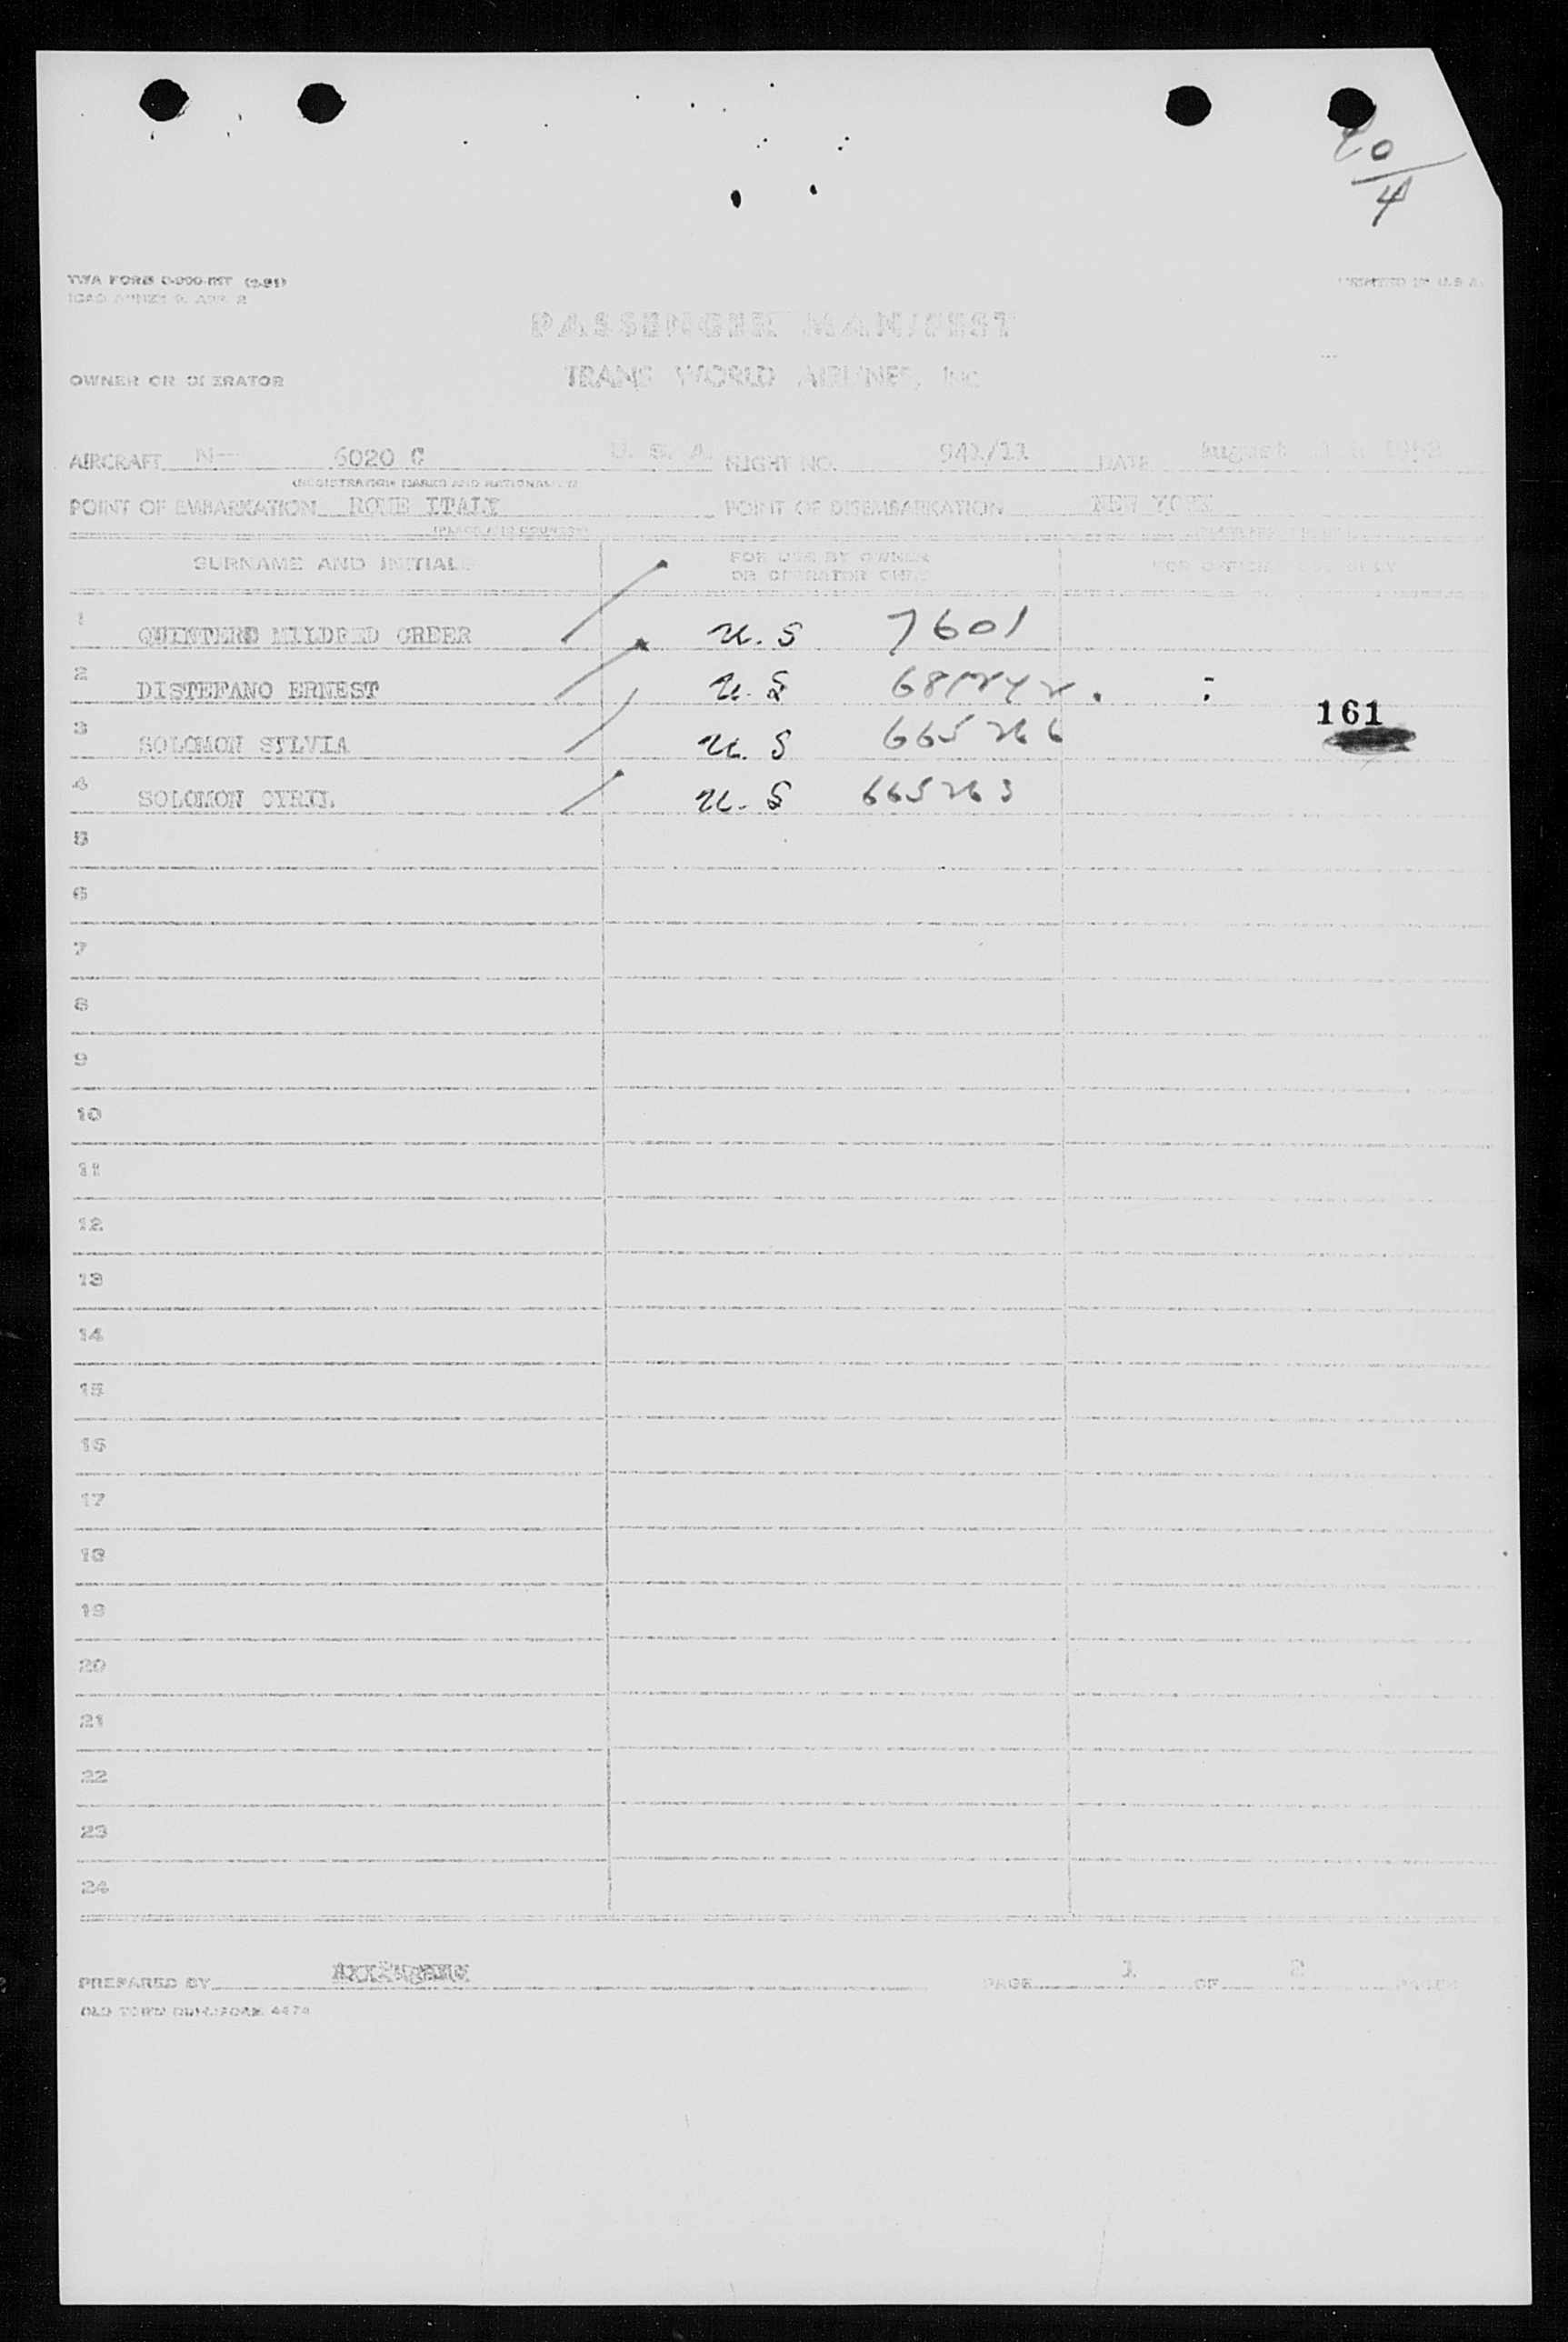 20
4
TWA FORM
PRINTED IN U.S.A.
PASSENGER MANIFEST
OWNER OR OPERATOR TRANS WORLD AIRLINES, INC
AIRCRAFT N— 6020 C U. S. A. FLIGHT NO. 941/11 DATE August
(REGISTRATION MARKS AND NATIONALITY)
POINT OF EMBARKATION ROME ITALY POINT OF DISEMBARKATION NEW YORK
SURNAME AND INITIALS FOR USE BY OWNER OR OPERATOR ONLY FOR OFFICIAL USE ONLY
1 QUINTERO MILDRED GREER U.S 7601
2 DISTEFANO ERNEST U.S
161
3 SOLOMON SYLVIA U.S 665266
4 SOLOMON CYRIL U.S 665263
5
6
7
8
9
10
11
12
13
14
15
16
17
18
19
20
21
22
23
24
PREPARED BY PAGE 1 OF 2 PAGES
OLD TOWN